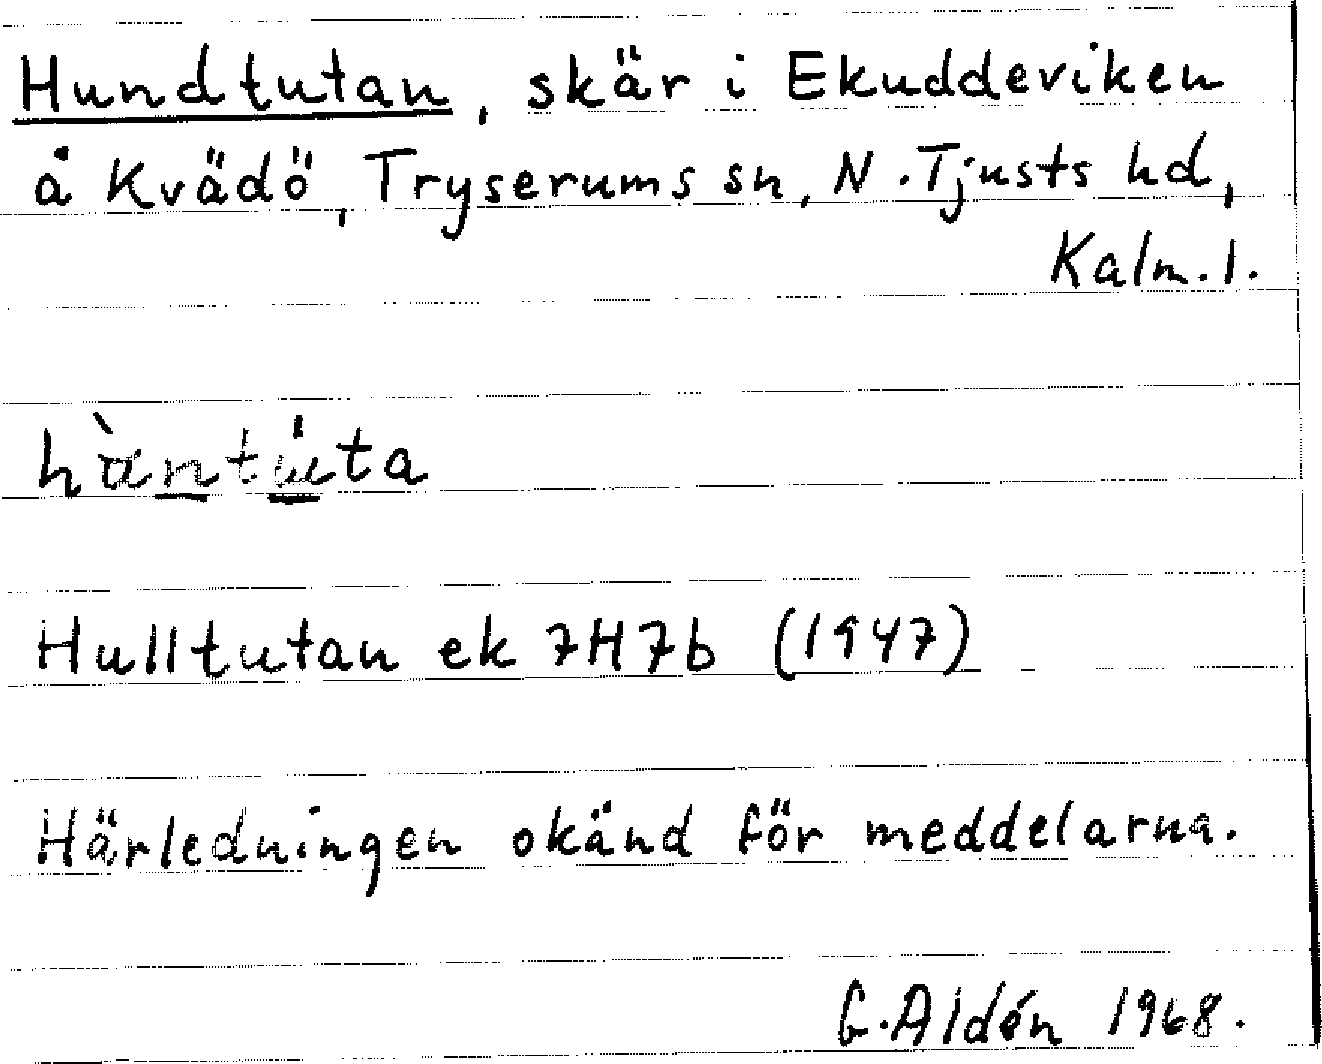 Hundtutan, skär i Ekuddeviken
å Kvädö, Tryserums sn, N. Tjusts hd,
Kalm. l.
Hulltutan ek 7H7b (1947)
Härledningen okänd för meddelarna.
G. Aldén 1968.